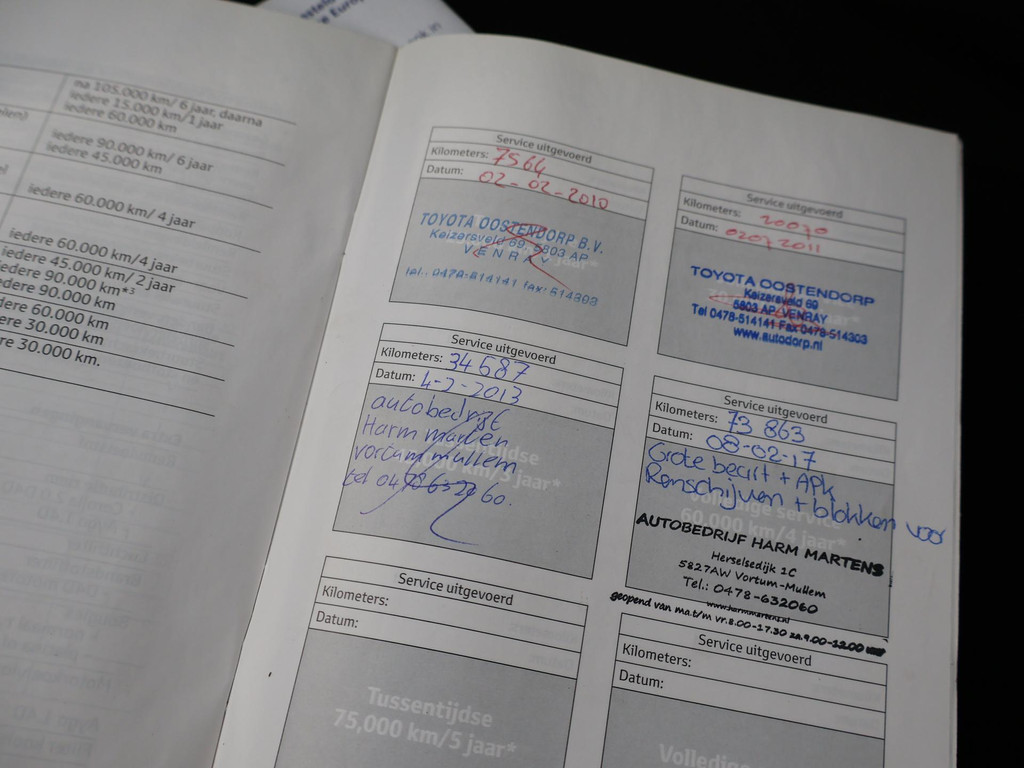 na 105.000 km/ 6 jaar, daarna
iedere 15.000 km/1 jaar
iedere 60.000 km
iedere 90.000 km/ 6 jaar
iedere 45.000 km
iedere 60.000 km/ 4 jaar
iedere 60.000 km/4 jaar
iedere 45.000 km/ 2 jaar
iedere 90.000 km*³
iedere 90.000 km
ere 60.000 km
ere 30.000 km
re 30.000 km.
Service uitgevoerd
Kilometers: 7564
Datum: 02-02-2010
TOYOTA OOSTENDORP B.V.
Keizersveld 69, 5803 AP
VENRAY
tel.: 0478-514141 fax: 514303
Service uitgevoerd
Kilometers: 20070
Datum: 0207 2011
TOYOTA OOSTENDORP
Keizersveld 69
5803 AP VENRAY
Tel 0478-514141 Fax 0478-514303
www.autodorp.nl
Service uitgevoerd
Kilometers: 34687
Datum: 4-2-2013
autobedrijf
Harm marten
vortum mullem
tel 0478632060.
Service uitgevoerd
Kilometers: 73 863
Datum: 08-02-17
Grote beurt + Apk
Remschijven + blokken voor
60.000 km/4 jaar
AUTOBEDRIJF HARM MARTENS
Herselsedijk 1C
5827AW Vortum-Mullem
Tel.: 0478-632060
www.harmmartens.nl
geopend van ma.t/m vr.8.00-17.30 za.9.00-12.00 uur
Service uitgevoerd
Kilometers:
Datum:
Tussentijdse
75,000 km/5 jaar*
Service uitgevoerd
Kilometers:
Datum:
Volledige